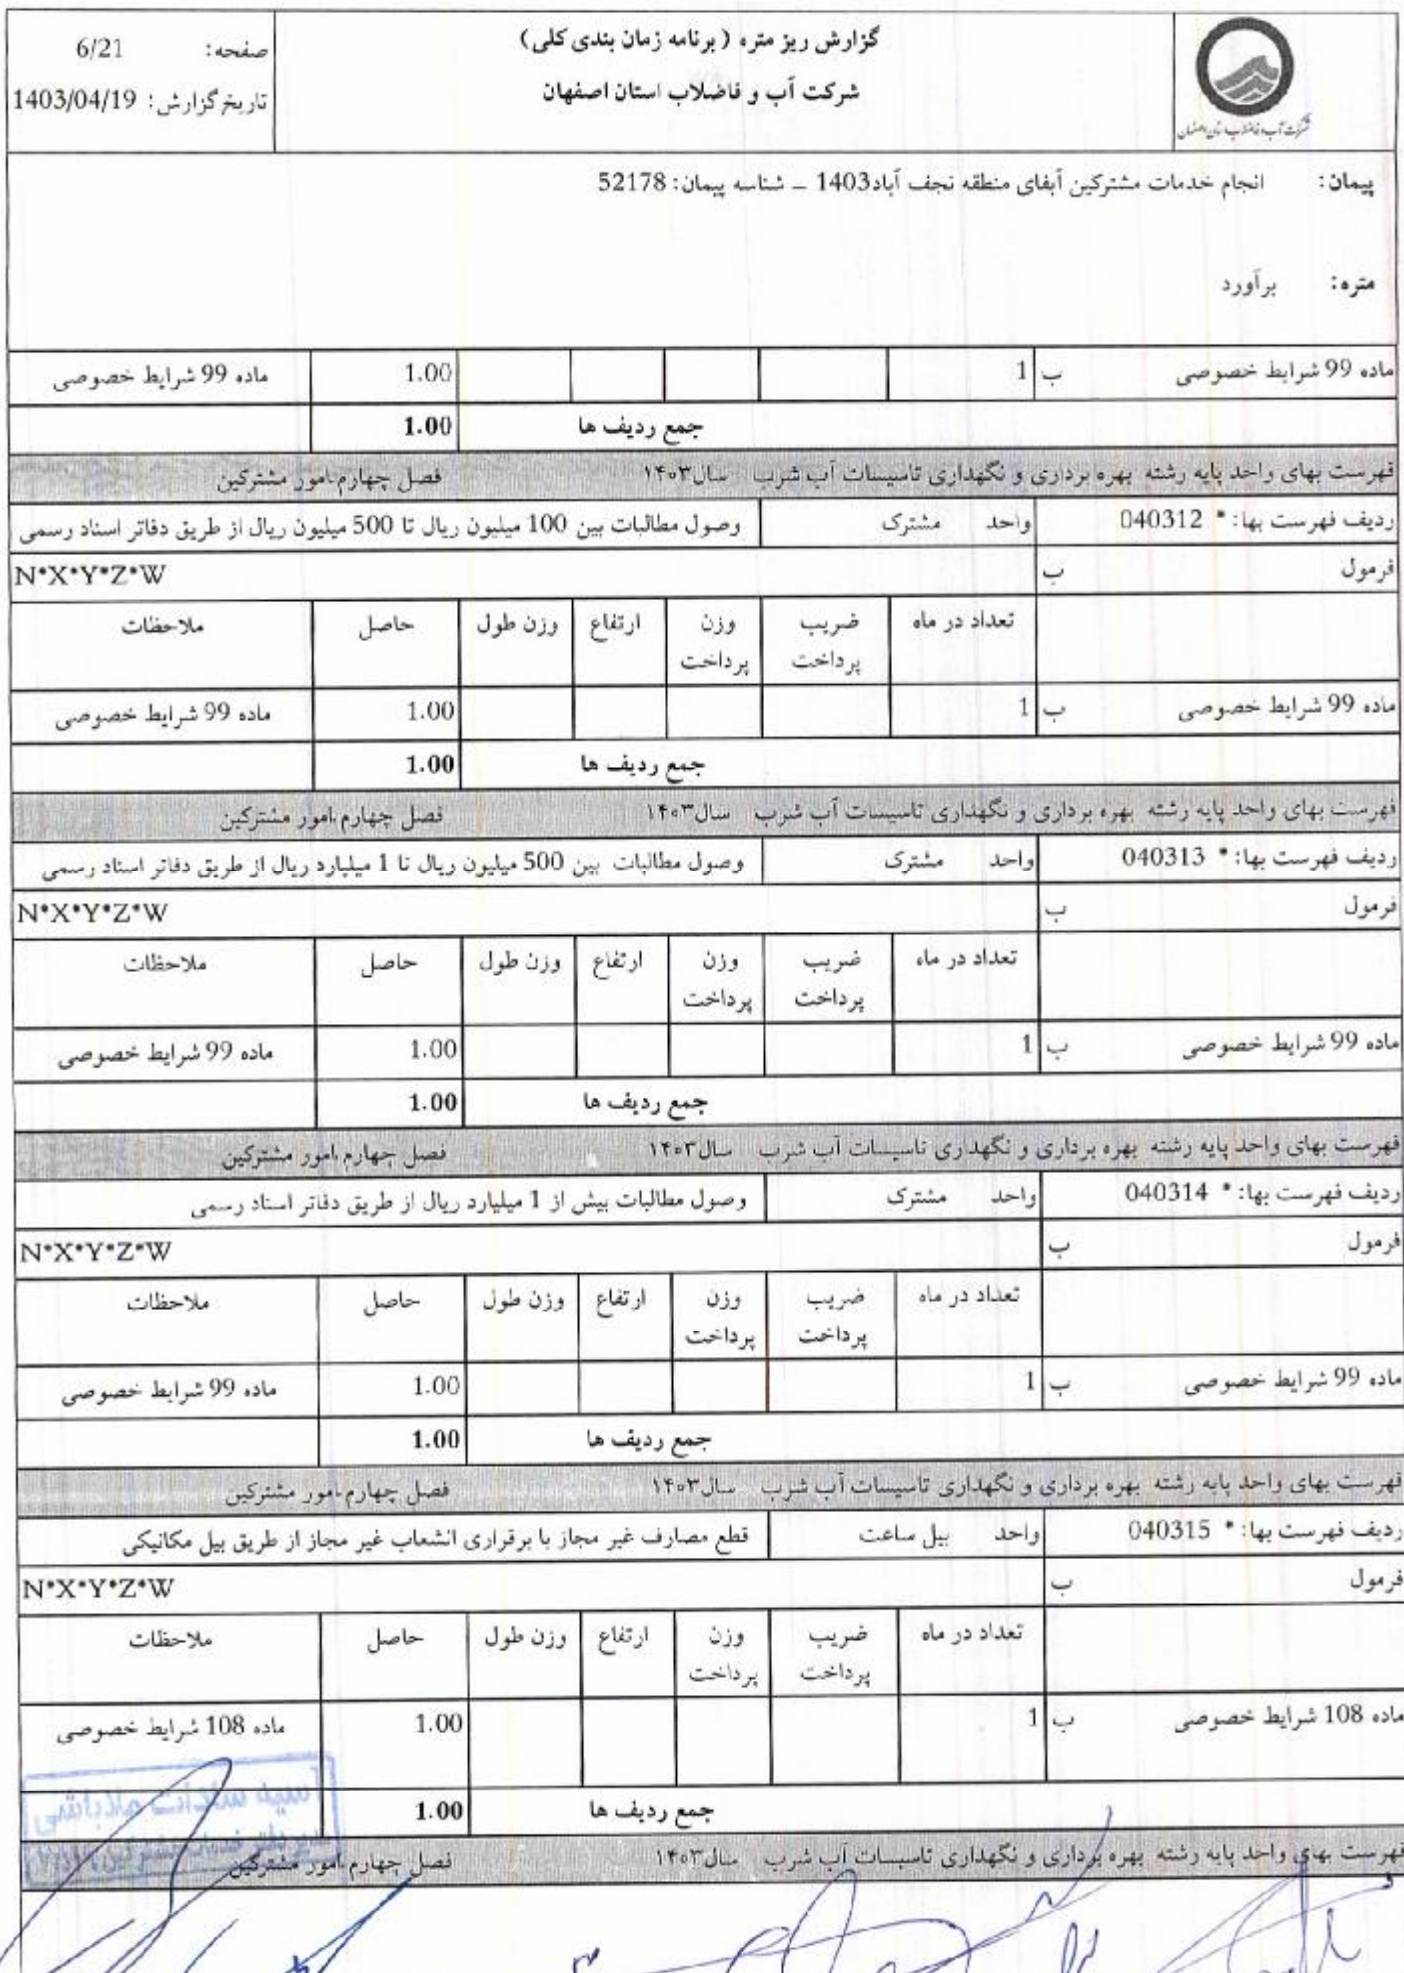 گزارش ریز متره ( برنامه زمان بندی کلی)
شرکت آب و فاضلاب استان اصفهان
صفحه: 6/21
تاریخ گزارش: 1403/04/19
شرکت آب و فاضلاب استان اصفهان
پیمان: انجام خدمات مشترکین آبفای منطقه نجف آباد1403 – شناسه پیمان: 52178
متره: برآورد
ماده 99 شرایط خصوصی ب 1 1.00 ماده 99 شرایط خصوصی
جمع ردیف ها 1.00
فهرست بهای واحد پایه رشته بهره برداری و نگهداری تاسیسات آب شرب سال۱۴۰۳ فصل چهارم.امور مشترکین
ردیف فهرست بها: * 040312 واحد مشترک وصول مطالبات بین 100 میلیون ریال تا 500 میلیون ریال از طریق دفاتر اسناد رسمی
فرمول ب N*X*Y*Z*W
تعداد در ماه ضریب پرداخت وزن پرداخت ارتفاع وزن طول حاصل ملاحظات
ماده 99 شرایط خصوصی ب 1 1.00 ماده 99 شرایط خصوصی
جمع ردیف ها 1.00
فهرست بهای واحد پایه رشته بهره برداری و نگهداری تاسیسات آب شرب سال۱۴۰۳ فصل چهارم.امور مشترکین
ردیف فهرست بها: * 040313 واحد مشترک وصول مطالبات بین 500 میلیون ریال تا 1 میلیارد ریال از طریق دفاتر اسناد رسمی
فرمول ب N*X*Y*Z*W
تعداد در ماه ضریب پرداخت وزن پرداخت ارتفاع وزن طول حاصل ملاحظات
ماده 99 شرایط خصوصی ب 1 1.00 ماده 99 شرایط خصوصی
جمع ردیف ها 1.00
فهرست بهای واحد پایه رشته بهره برداری و نگهداری تاسیسات آب شرب سال۱۴۰۳ فصل چهارم.امور مشترکین
ردیف فهرست بها: * 040314 واحد مشترک وصول مطالبات بیش از 1 میلیارد ریال از طریق دفاتر اسناد رسمی
فرمول ب N*X*Y*Z*W
تعداد در ماه ضریب پرداخت وزن پرداخت ارتفاع وزن طول حاصل ملاحظات
ماده 99 شرایط خصوصی ب 1 1.00 ماده 99 شرایط خصوصی
جمع ردیف ها 1.00
فهرست بهای واحد پایه رشته بهره برداری و نگهداری تاسیسات آب شرب سال۱۴۰۳ فصل چهارم.امور مشترکین
ردیف فهرست بها: * 040315 واحد بیل ساعت قطع مصارف غیر مجاز با برقراری انشعاب غیر مجاز از طریق بیل مکانیکی
فرمول ب N*X*Y*Z*W
تعداد در ماه ضریب پرداخت وزن پرداخت ارتفاع وزن طول حاصل ملاحظات
ماده 108 شرایط خصوصی ب 1 1.00 ماده 108 شرایط خصوصی
جمع ردیف ها 1.00
فهرست بهای واحد پایه رشته بهره برداری و نگهداری تاسیسات آب شرب سال۱۴۰۳ فصل چهارم.امور مشترکین